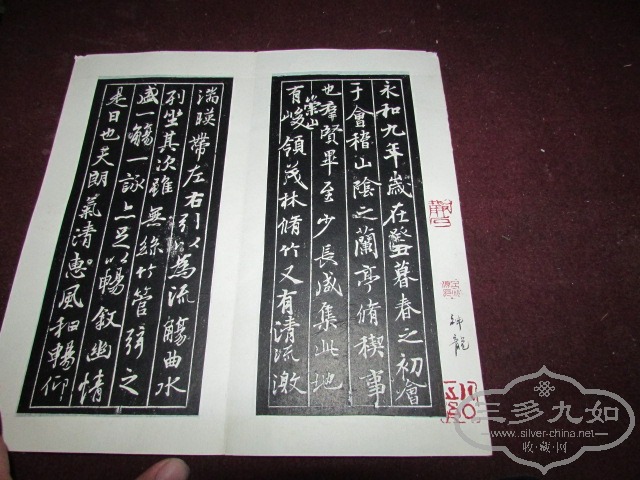 永和九年歲在癸丑暮春之初會
于會稽山陰之蘭亭脩稧事
也羣賢畢至少長咸集此地
有崇山峻領茂林脩竹又有清流激
湍暎帶左右引以為流觴曲水
列坐其次雖無絲竹管弦之
盛一觴一詠亦足以暢敘幽情
是日也天朗氣清惠風和暢仰
神龍
三多九如
www.silver-china.net
收·藏·网